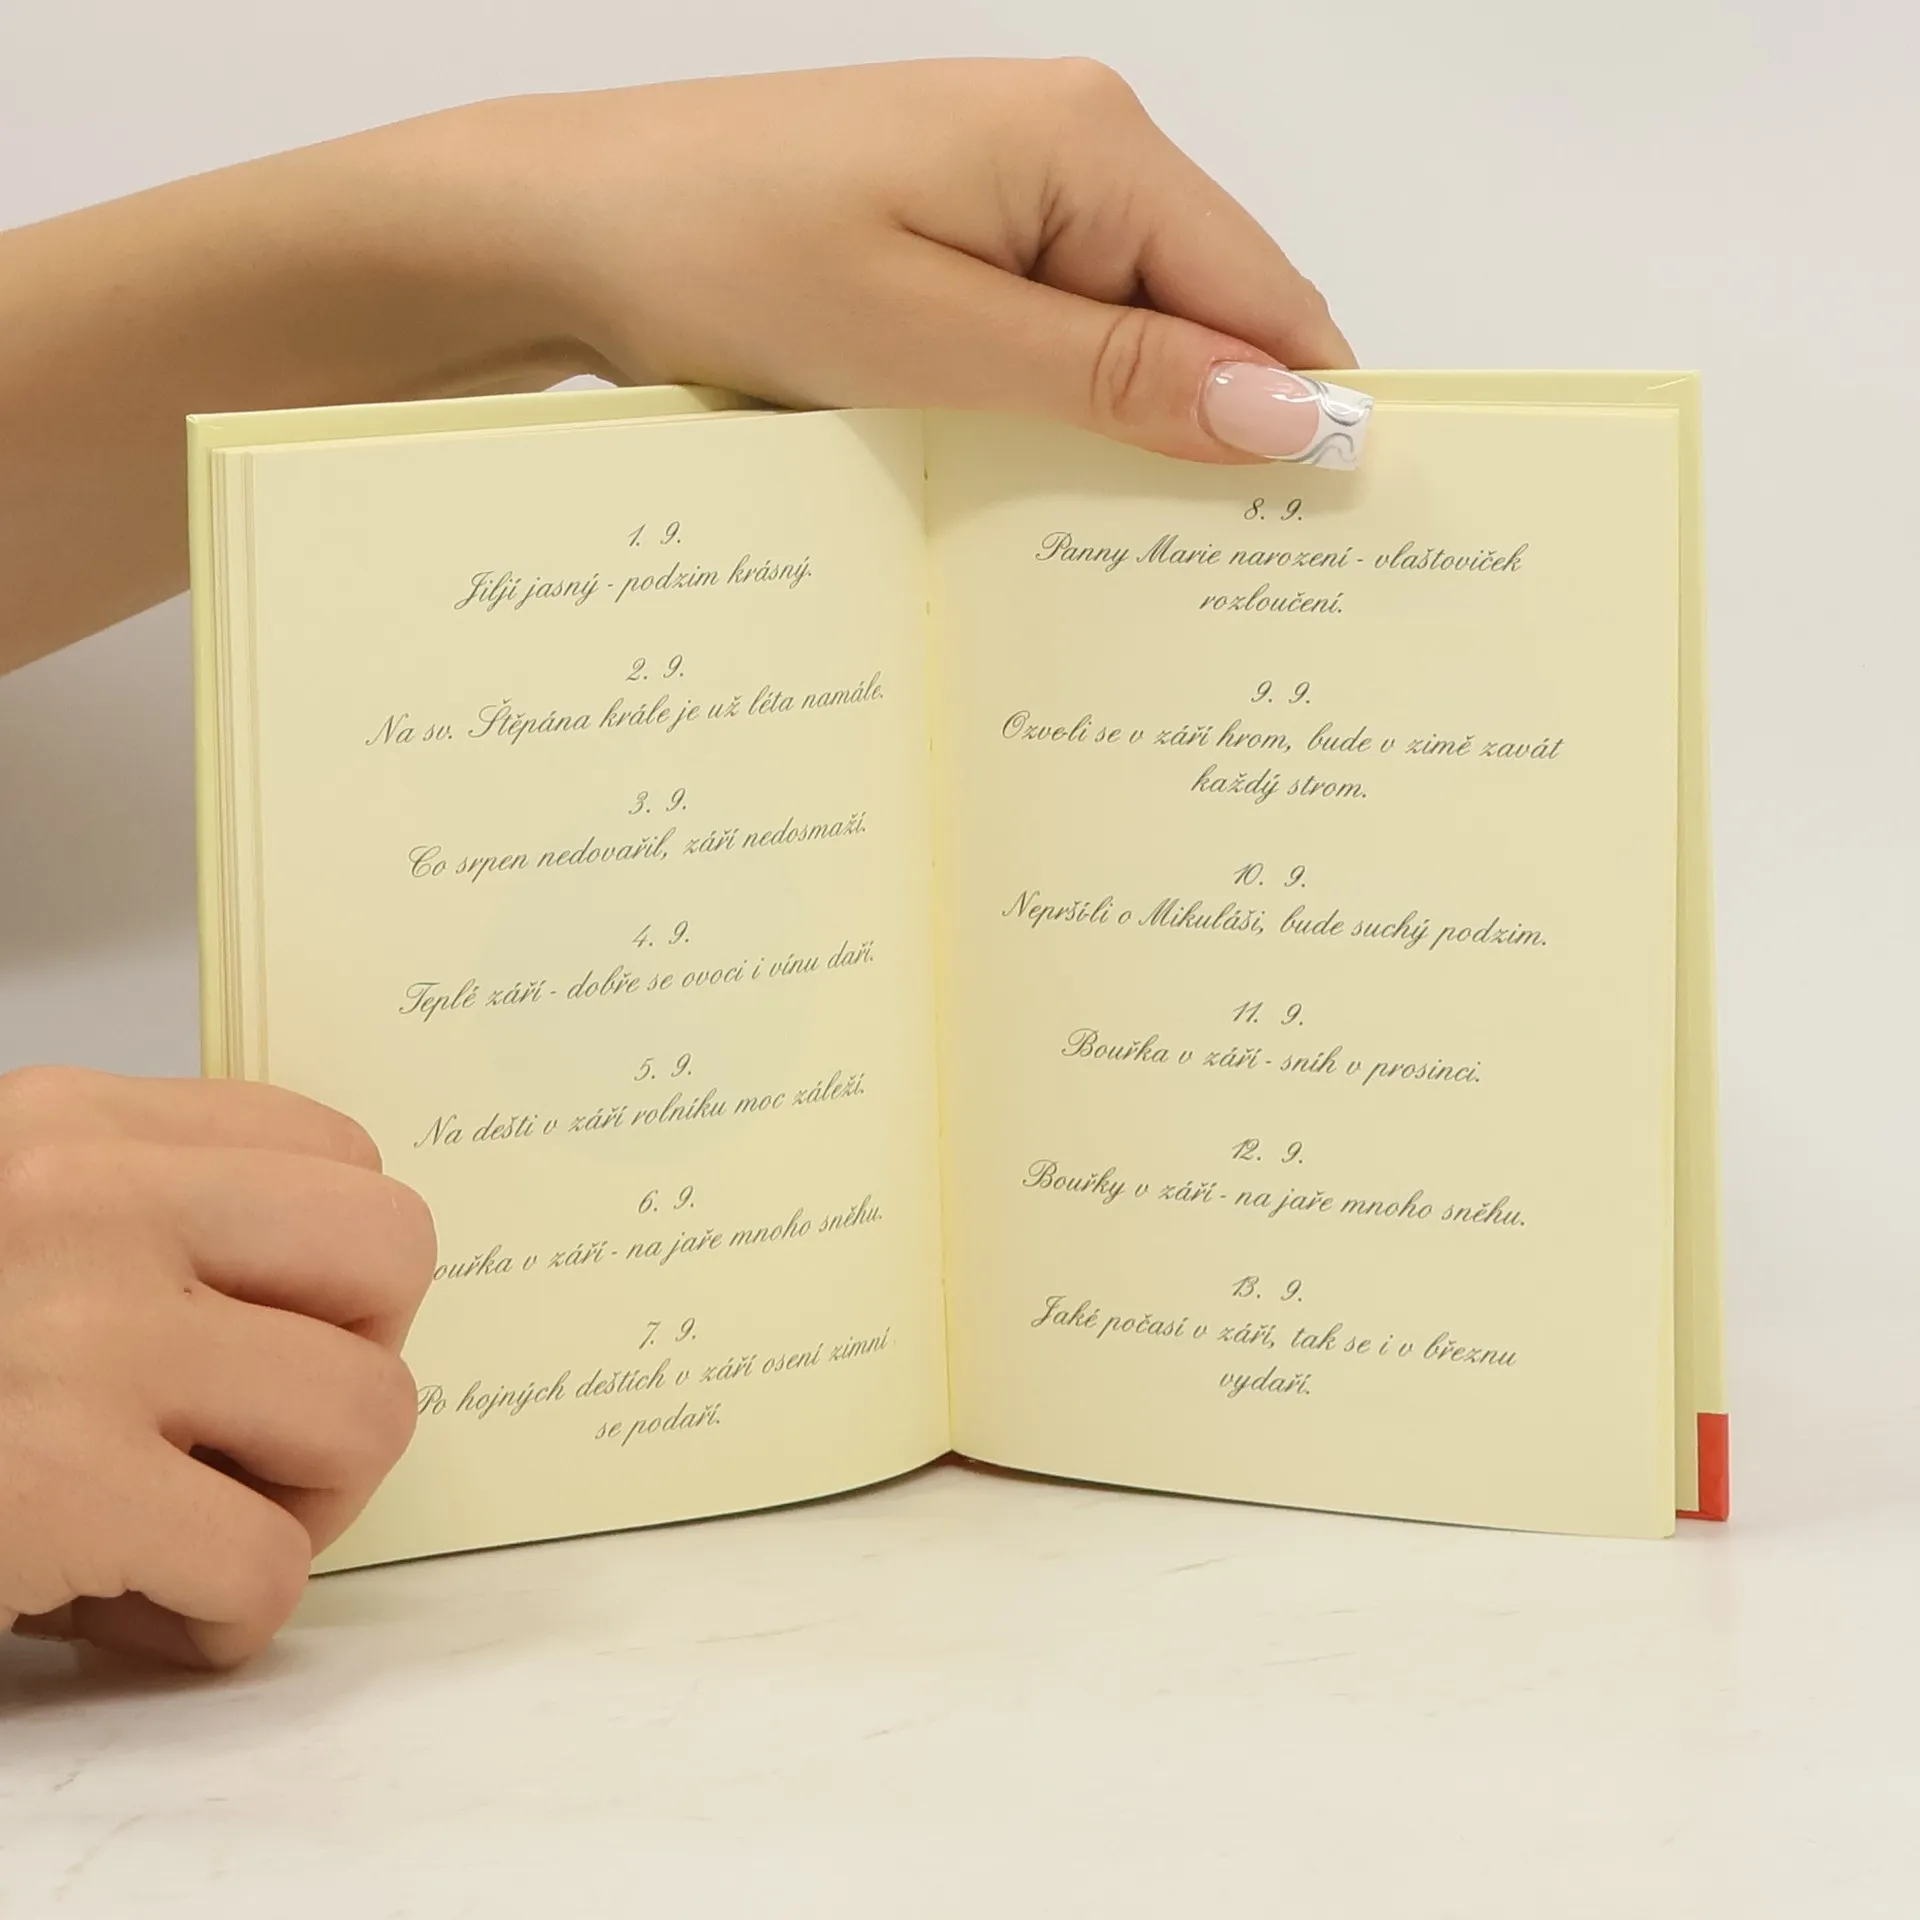 1. 9.
Jiljí jasný - podzim krásný.
2. 9.
Na sv. Štěpána krále je už léta namále.
3. 9.
Co srpen nedovařil, září nedosmaží.
4. 9.
Teplé září - dobře se ovoci i vínu daří.
5. 9.
Na dešti v září rolníku moc záleží.
6. 9.
v září - na jaře mnoho sněhu.
7. 9.
Po hojných deštích v září osení zimní
se podaří.
8. 9.
Panny Marie narození - vlaštoviček
rozloučení.
9. 9.
Ozve-li se v září hrom, bude v zimě zavát
každý strom.
10. 9.
Neprší-li o Mikuláši, bude suchý podzim.
11. 9.
Bouřka v září - sníh v prosinci.
12. 9.
Bouřky v září - na jaře mnoho sněhu.
13. 9.
Jaké počasí v září, tak se i v březnu
vydaří.